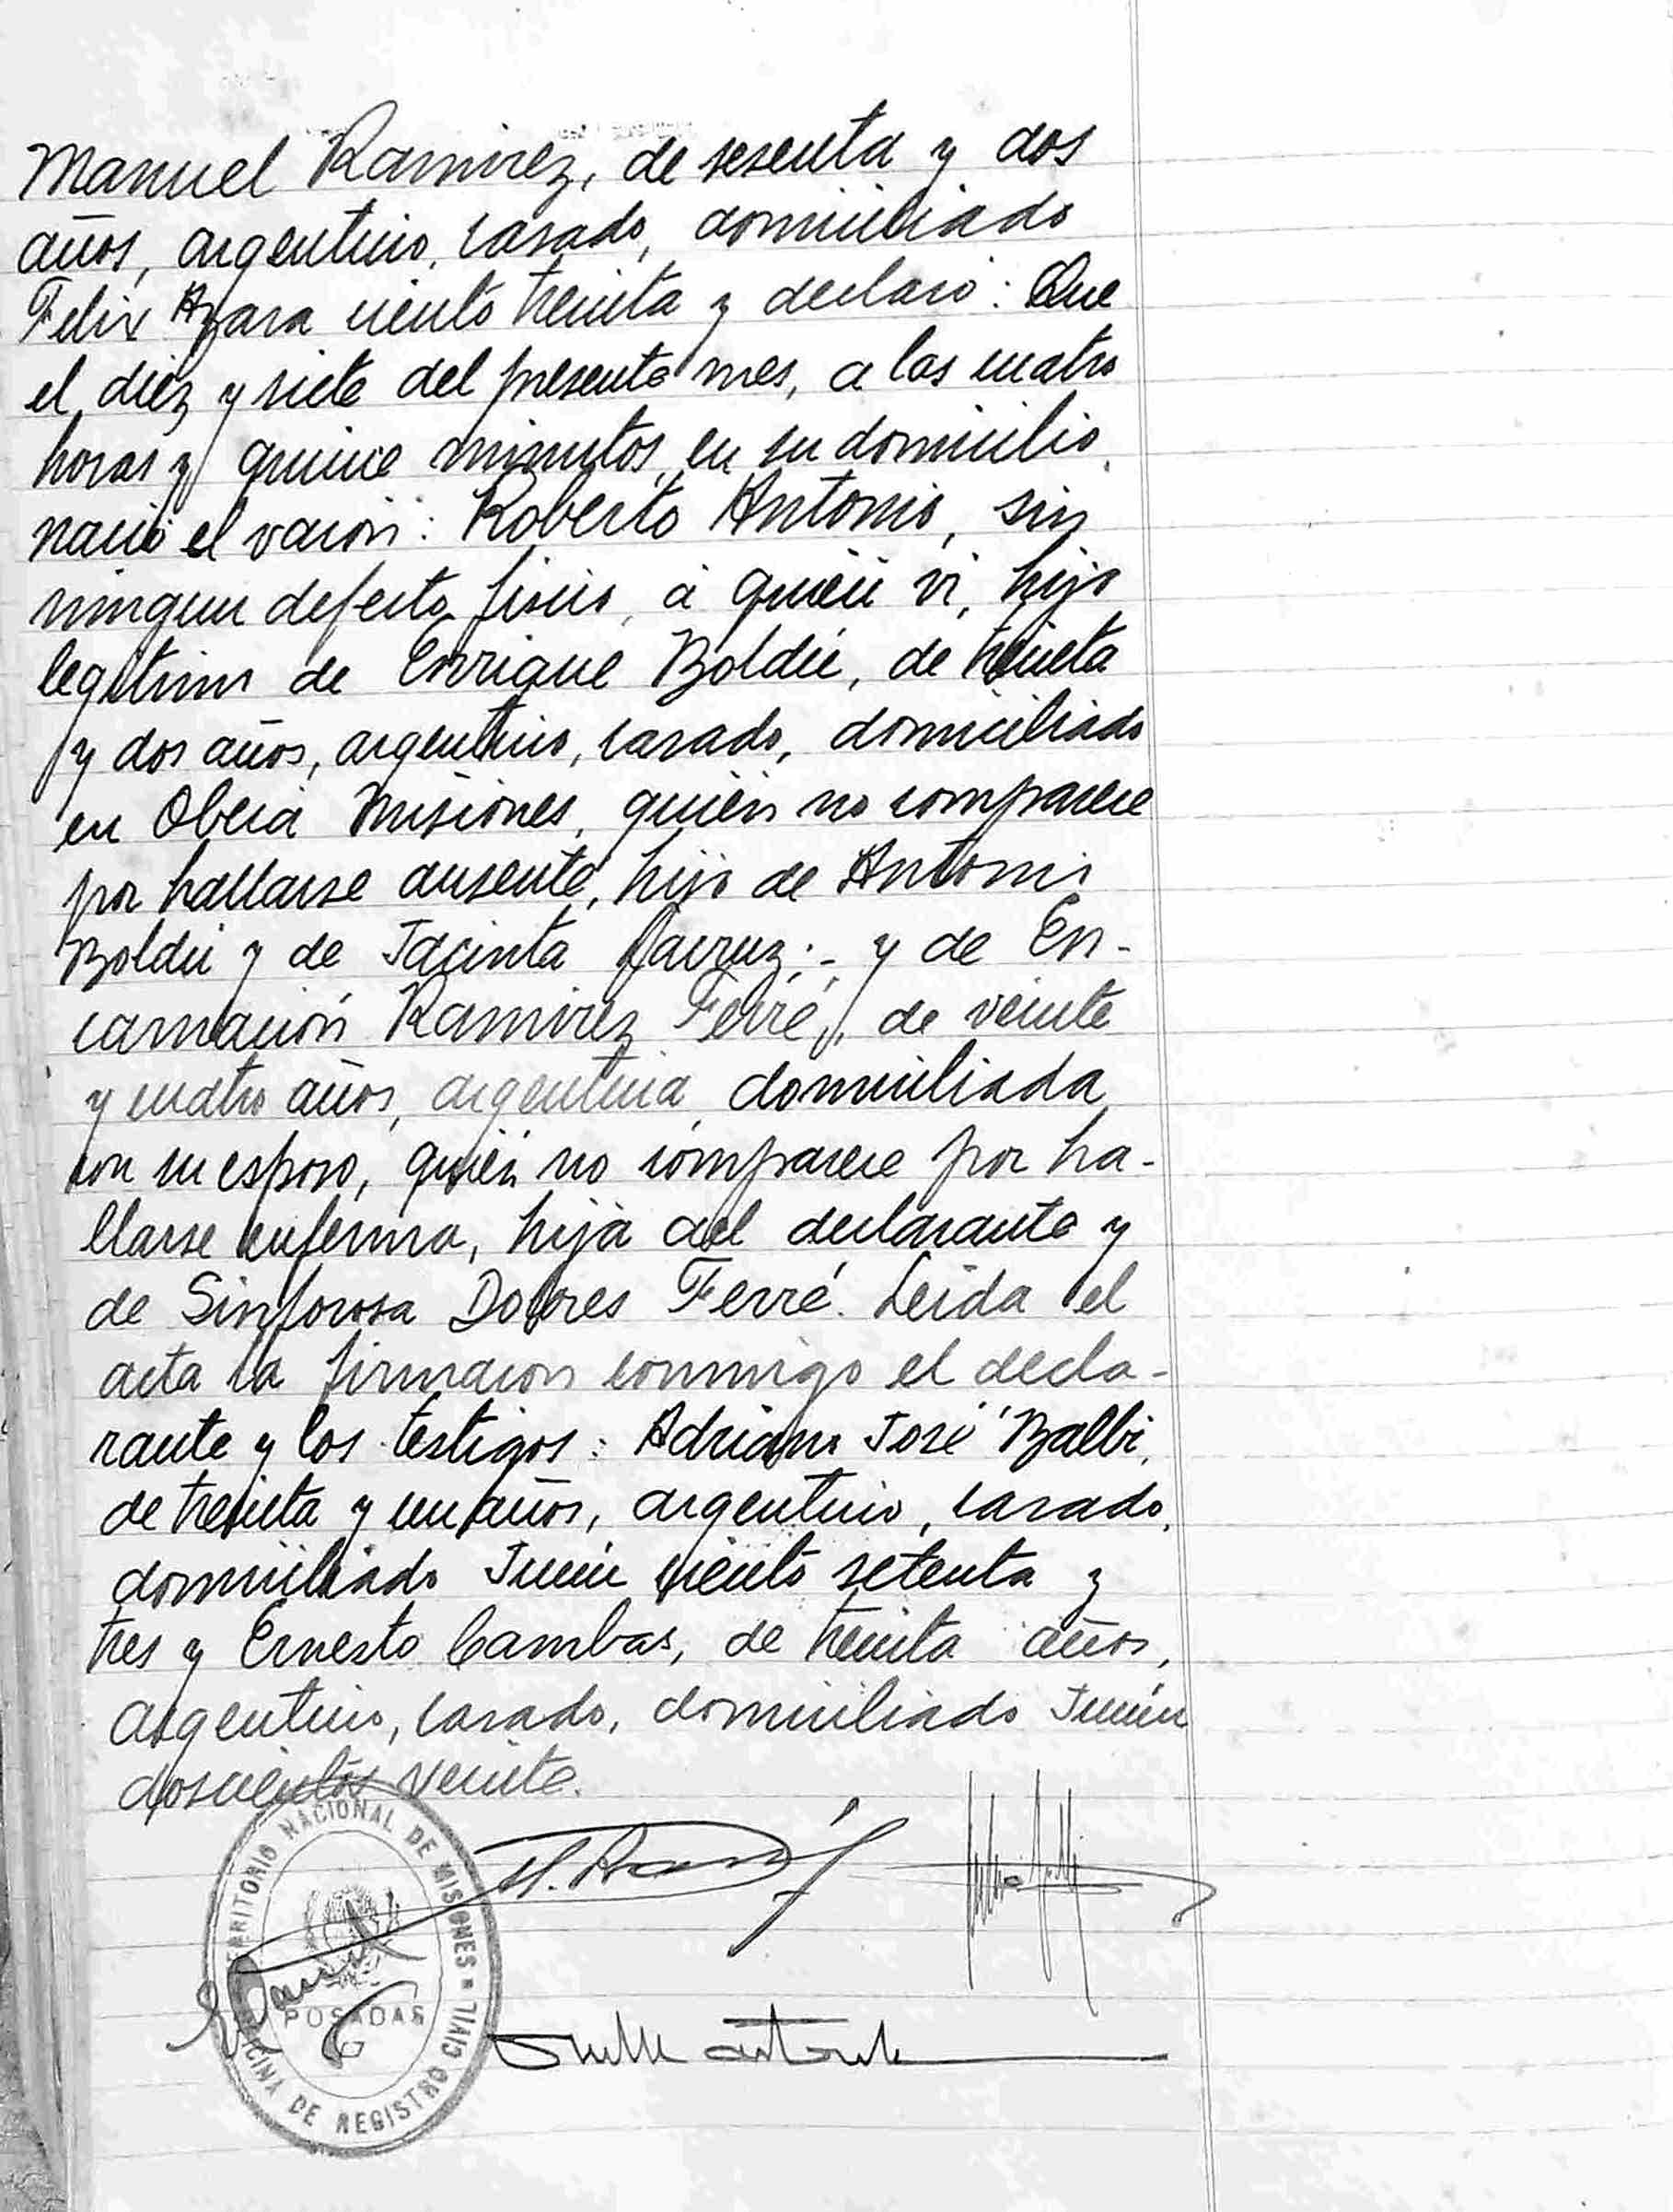 Manuel Ramirez, de sesenta y dos
años, argentino, casado, domiciliado
Felix Azara ciento treinta y declaró: Que
el diez y siete del presente mes, a las cuatro
horas y quince minutos, en su domicilio,
nació el varón: Roberto Antonio, sin
ningun defecto físico, á quién vi, hijo
legítimo de Enrique Boldú, de treinta
y dos años, argentino, casado, domiciliado
en Oberá Misiones, quién no comparece
por hallarse ausente, hijo de Antonio
Boldú y de Jacinta ;- y de En-
carnación Ramirez Ferré, de veinte
y cuatro años, argentina, domiciliada
con su esposo, quién no comparece por ha-
llarse enferma, hija del declarante y
de Sinforosa Dolores Ferré. Leida el
acta la firmaron conmigo el decla-
rante y los testigos: Adriano José Balbi,
de treinta y un años, argentino, casado,
domiciliado Junín ciento setenta y
tres y Ernesto Cambas, de treinta años,
argentino, casado, domiciliado Junín
doscientos veinte.
TERRITORIO NACIONAL DE MISIONES
POSADAS
OFICINA DE REGISTRO CIVIL